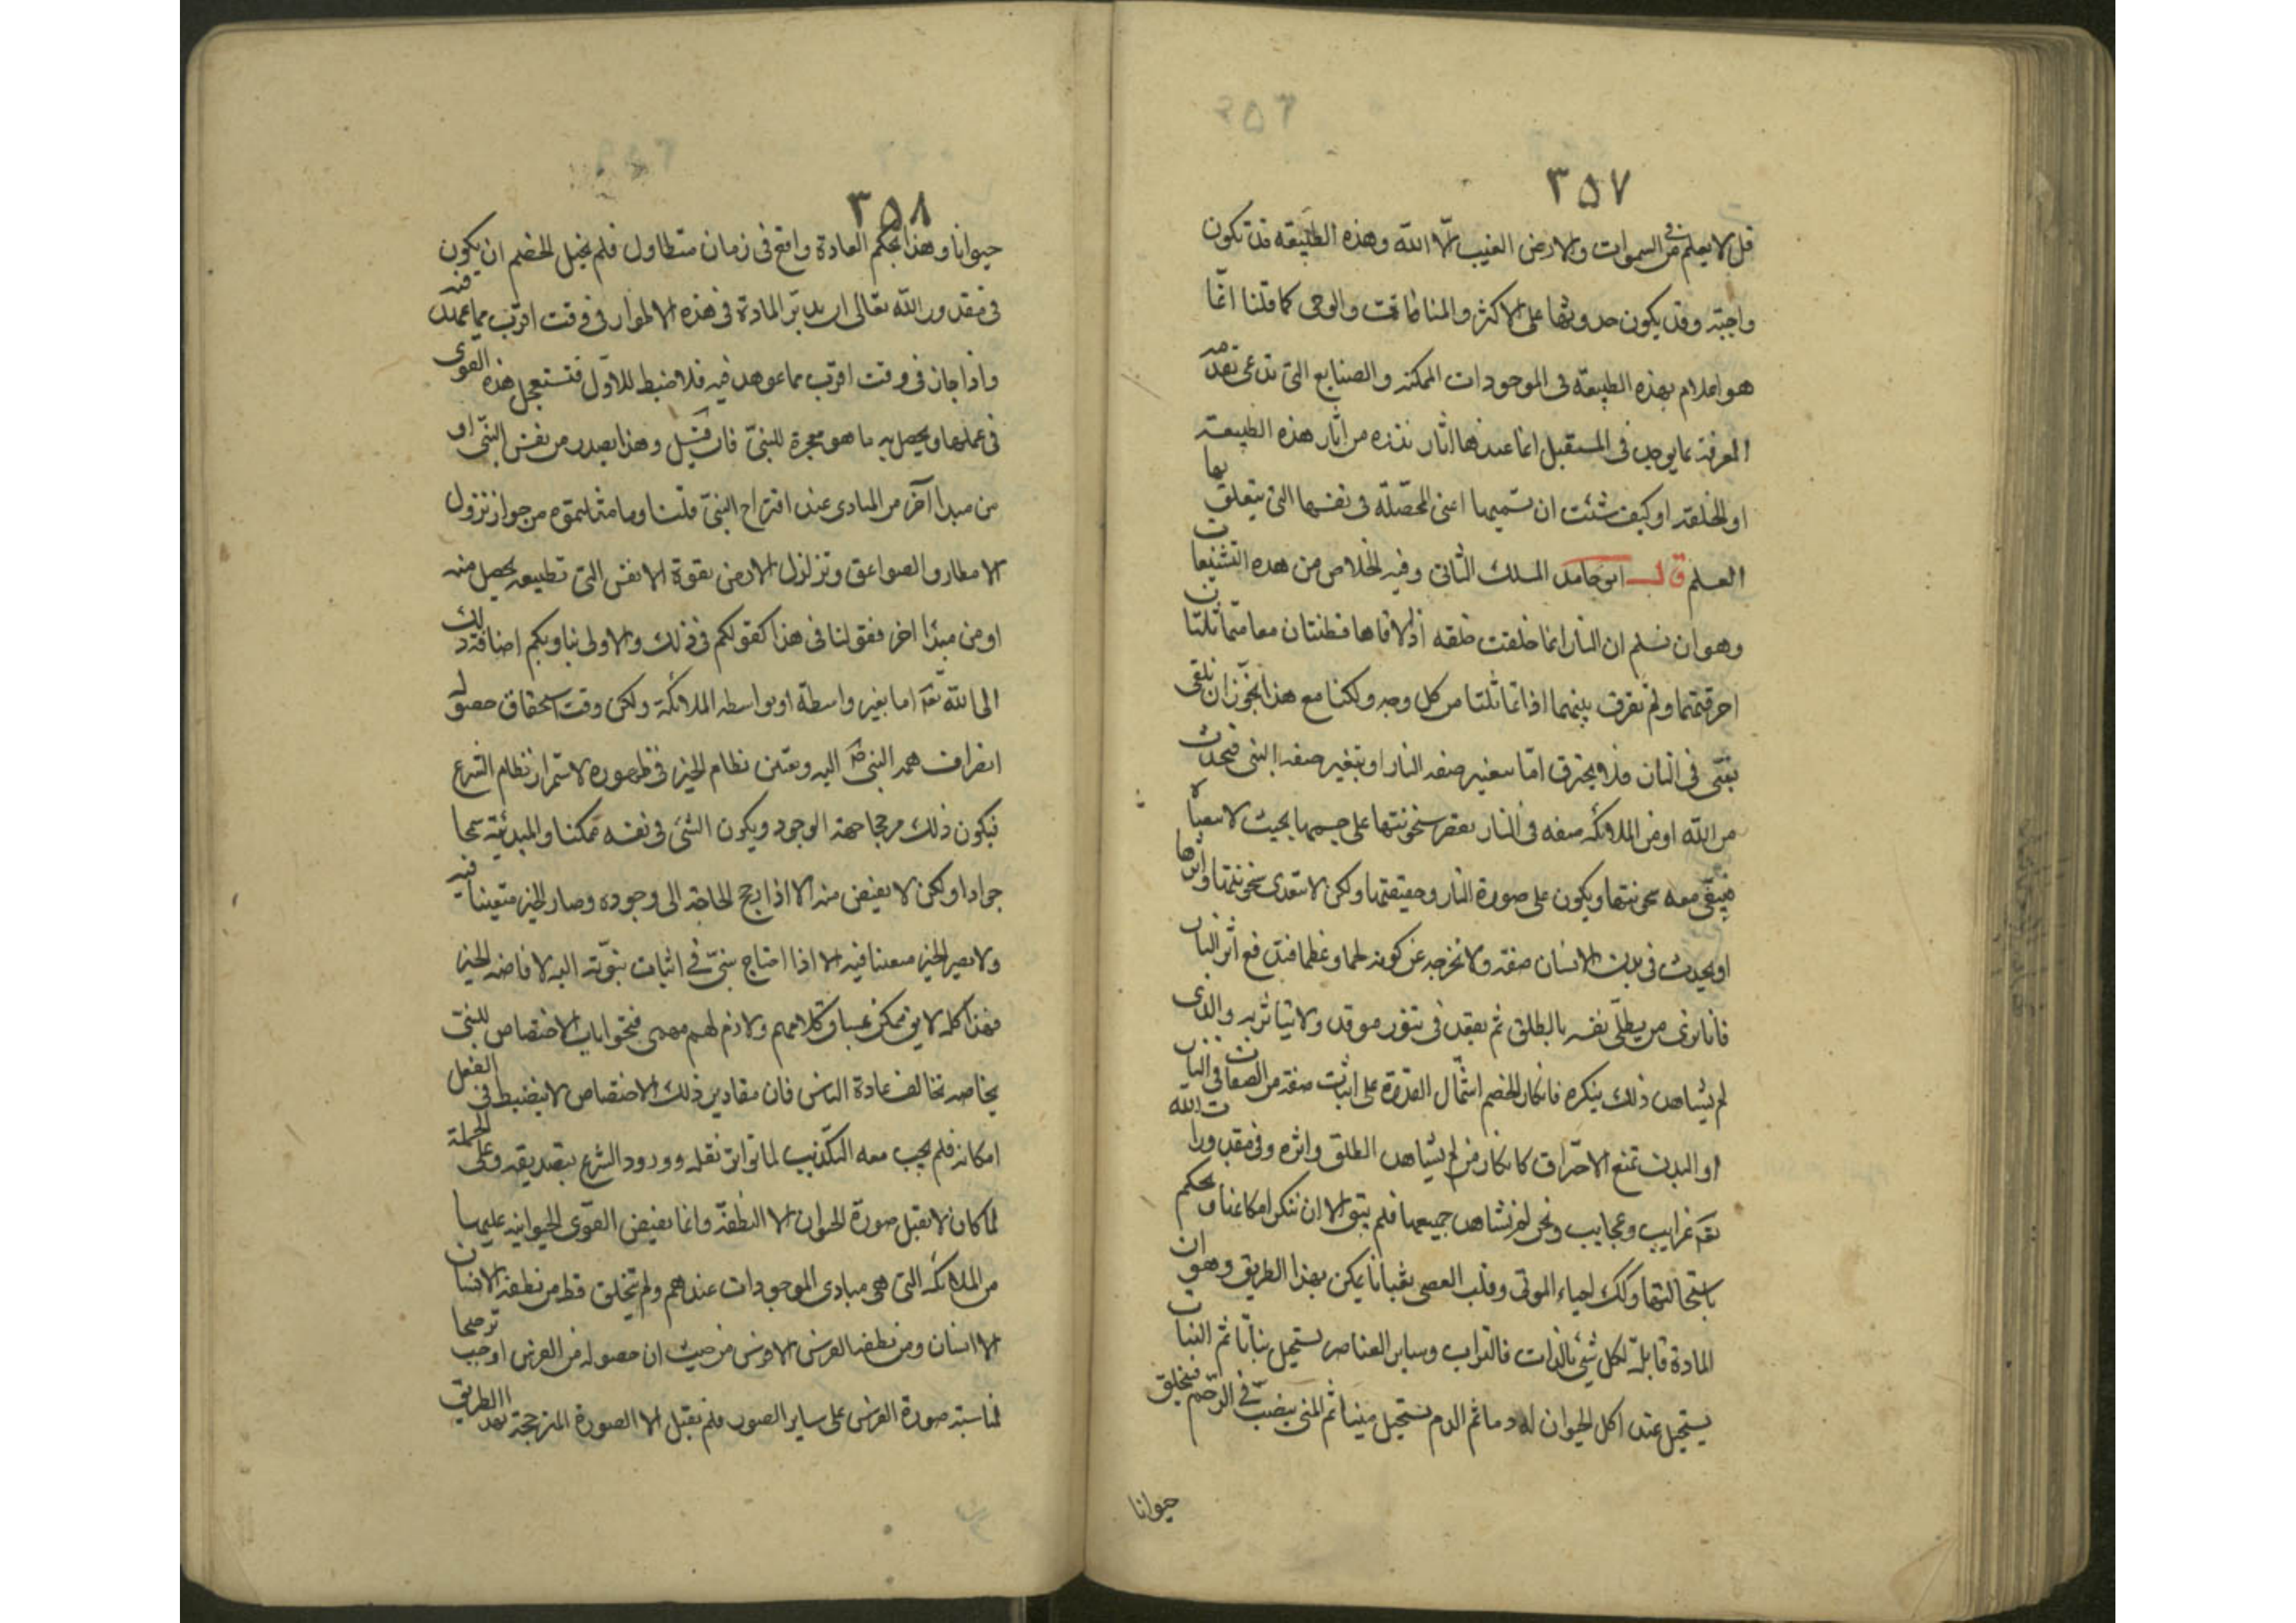 ٣٥٧
قل لا يعلم من في السموات والارض الغيب الا الله وهذه الطبيعة قد تكون
واجبة وقد يكون حدوثها على الاكثر والمنامات والوحى كما قلنا انما
هو اعلام بهذه الطبيعة فى الموجودات الممكنة والصنايع التى تدعى تقدمه
المعرفة بما يوجد فى المستقبل انما عندها اثار نذره من اثار هذه الطبيعة
او الخلقة او كيف شئت ان تسميها اعنى المحصلة فى نفسها التى يتعلق بها
العلم قال ابو حامد المسلك الثانى وفيه الخلاص من هذه التشنيعات
وهو ان نسلم ان النار انما خلقت خلقه اذا لاقاها قطنتان معا متماثلتان
احرقتهما ولم تفرق بينهما اذا تماثلتا من كل وجه ولكنا مع هذا نجوز ان نلقى
نبى فى النار فلا يحترق اما بتغير صفه النار او بتغير صفه النبى فتحدث
من الله او من الملائكه صفه فى النار تقصر سخونتها على جسمها بحيث لا تتعداه
فيبقى معه سخونتها ويكون على صورة النار وحقيقتها ولكن لا تتعدى سخونتها واثرها
او يحدث فى بدن الانسان صفة ولا تخرجه عن كونه لحما وعظما فتدفع اثر النار
فانا نرى من يطلى نفسه بالطلق ثم يقعد فى تنور موقد ولا يتاثر به والذى
لم يشاهد ذلك ينكره فانكار الخصم اشتمال القدرة على اثبات صفة من الصفات فى النار
او البدن تمنع الاحتراق كانكار من لم يشاهد الطلق واثره وفى مقدورات الله
تعه غرايب وعجايب ونحن لم نشاهد جميعها فلم يبق الا ان ننكر امكانها ونحكم
باستحالتها وكك احياء الموتى وقلب العصى ثعبانا يمكن بهذا الطريق وهو ان
المادة قابلة لكل شئ فالتراب وساير العناصر يستحيل نباتا ثم النبات
يستحيل عند اكل الحيوان له دما ثم الدم يستحيل منيا ثم المنى ينصب فى الرحم فيتخلق
حيوانا
٣٥٨
حيوانا وهذا بحكم العادة واقع فى زمان متطاول فلم يحيل الخصم ان يكون
فى مقدور الله تعالى ان يدبر المادة فى هذه الاطوار فى وقت اقرب مما عهد فيه
واذا جاز فى وقت اقرب مما عوهد فيه فلا ضبط للاول فتستعجل هذه القوى
فى عملها ويحصل به ما هو معجزة للنبى فان قيل وهذا يصدر من نفس النبى او
من مبدا آخر من المبادى عند اقتراح النبى قلنا وما سلمتموه من جواز نزول
الامطار والصواعق وتزلزل الارض بقوة الانفس التى يحصل منه
او من مبدا اخر فقولنا فى هذا كقولكم فى ذلك والاولى بنا وبكم اضافة ذلك
الى الله تعه اما بغير واسطة او بواسطه الملائكة ولكن وقت استحقاق حصوله
انصراف همه النبى اليه وتعين نظام الخير فى ظهوره لاستمرار نظام الشرع
فيكون ذلك مرجحا جهة الوجود ويكون الشئ فى نفسه ممكنا والمبدئية سمحا
جوادا ولكن لا يفيض منه الا اذا ترجح الحاجة الى وجوده وصار الخير متعينا فيه
ولا يصير الخير متعينا فيه الا اذا احتاج نبى فى اثبات نبوته اليه لافاضه الخير
فهذا كله لايق بمساق كلامهم ولازم لهم مهما فتحوا باب الاختصاص للنبى
بخاصه تخالف عادة الناس فان مقادير ذلك الاختصاص لا ينضبط فى العقل
امكانه فلم يجب معه التكذيب لما تواتر نقله وورود الشرع بتصديقه وعلى الجملة
لما كان لا يقبل صورة الحيوان الا النطفة وانما يفيض القوى الحيوانيه عليها
من الملائكه التى هى مبادى الموجودات عندهم ولم يتخلق قط من نطفة الانسان
الا انسان ومن نطفه الفرس الا فرس من حيث ان حصوله من الفرس اوجب ترجيحا
لمناسبة صورة الفرس على ساير الصور فلم يقبل الا الصورة المترجحة بهذا الطريق